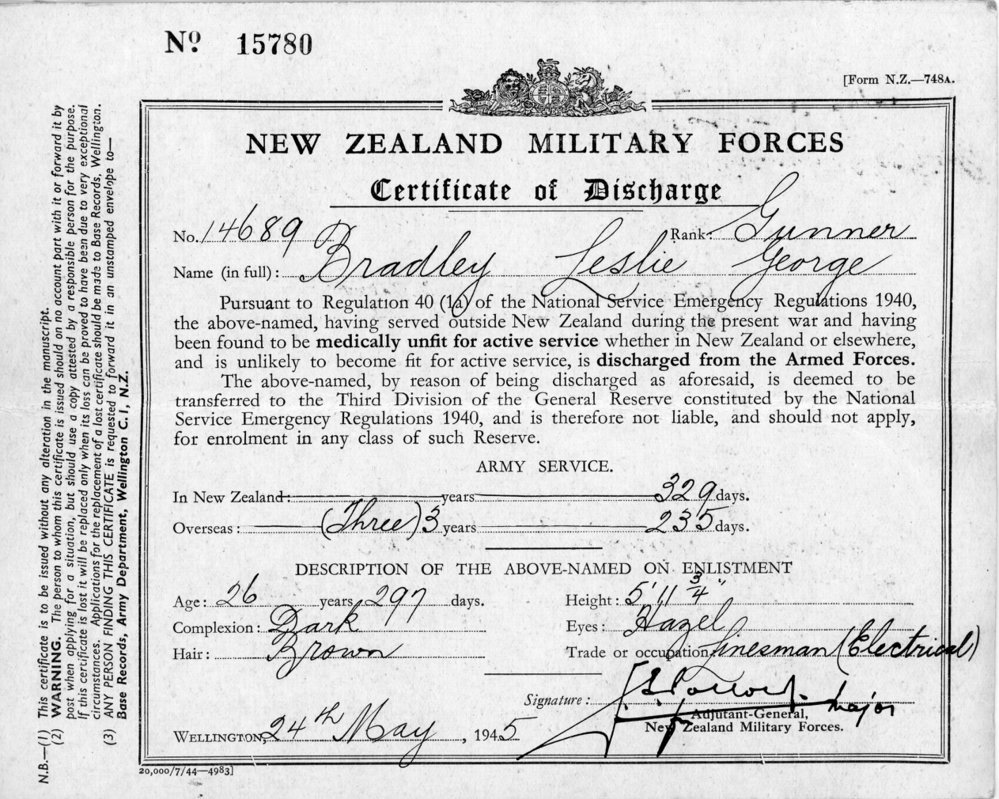 Nº 15780
[Form N.Z.—748A.
NEW ZEALAND MILITARY FORCES
Certificate of Discharge
No. 14689 Rank: Gunner
Name (in full): Bradley Leslie George
Pursuant to Regulation 40 (1a) of the National Service Emergency Regulations 1940,
the above-named, having served outside New Zealand during the present war and having
been found to be medically unfit for active service whether in New Zealand or elsewhere,
and is unlikely to become fit for active service, is discharged from the Armed Forces.
The above-named, by reason of being discharged as aforesaid, is deemed to be
transferred to the Third Division of the General Reserve constituted by the National
Service Emergency Regulations 1940, and is therefore not liable, and should not apply,
for enrolment in any class of such Reserve.
ARMY SERVICE.
In New Zealand: years 329 days.
Overseas: (Three) 3 years 235 days.
DESCRIPTION OF THE ABOVE-NAMED ON ENLISTMENT
Age: 26 years 297 days. Height: 5' 11 3/4"
Complexion: Dark Eyes: Hazel
Hair: Brown Trade or occupation Linesman (Electrical)
Signature: major
Adjutant-General,
WELLINGTON, 24th May, 1945 New Zealand Military Forces.
20,000/7/44—4983]
N.B.—(1) This certificate is to be issued without any alteration in the manuscript.
(2) WARNING. The person to whom this certificate is issued should on no account part with it or forward it by
post when applying for a situation, but should use a copy attested by a responsible person for the purpose.
If this certificate is lost it will be replaced only when its loss can be proved to have been due to very exceptional
circumstances. Applications for the replacement of a lost certificate should be made to Base Records, Wellington.
(3) ANY PERSON FINDING THIS CERTIFICATE is requested to forward it in an unstamped envelope to—
Base Records, Army Department, Wellington C.1, N.Z.